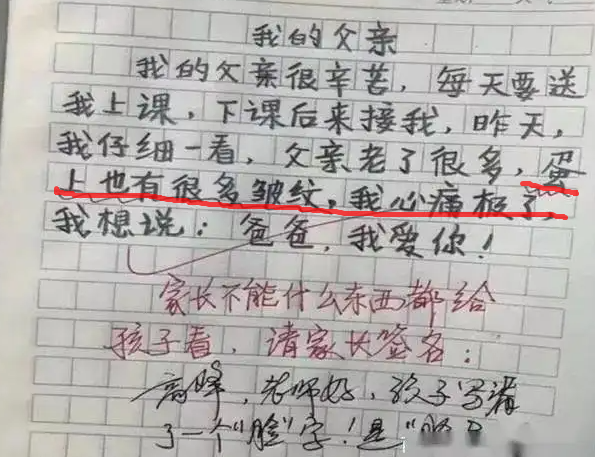 我的父亲
我的父亲很辛苦，每天要送
我上课，下课后来接我，昨天，
我仔细一看，父亲老了很多，蛋
上也有很多皱纹，我心痛极了，
我想说：爸爸，我爱你！
家长不能什么东西都给
孩子看，请家长签名：
高峰，老师好，孩子写漏
了一个“脸”字！是“脸